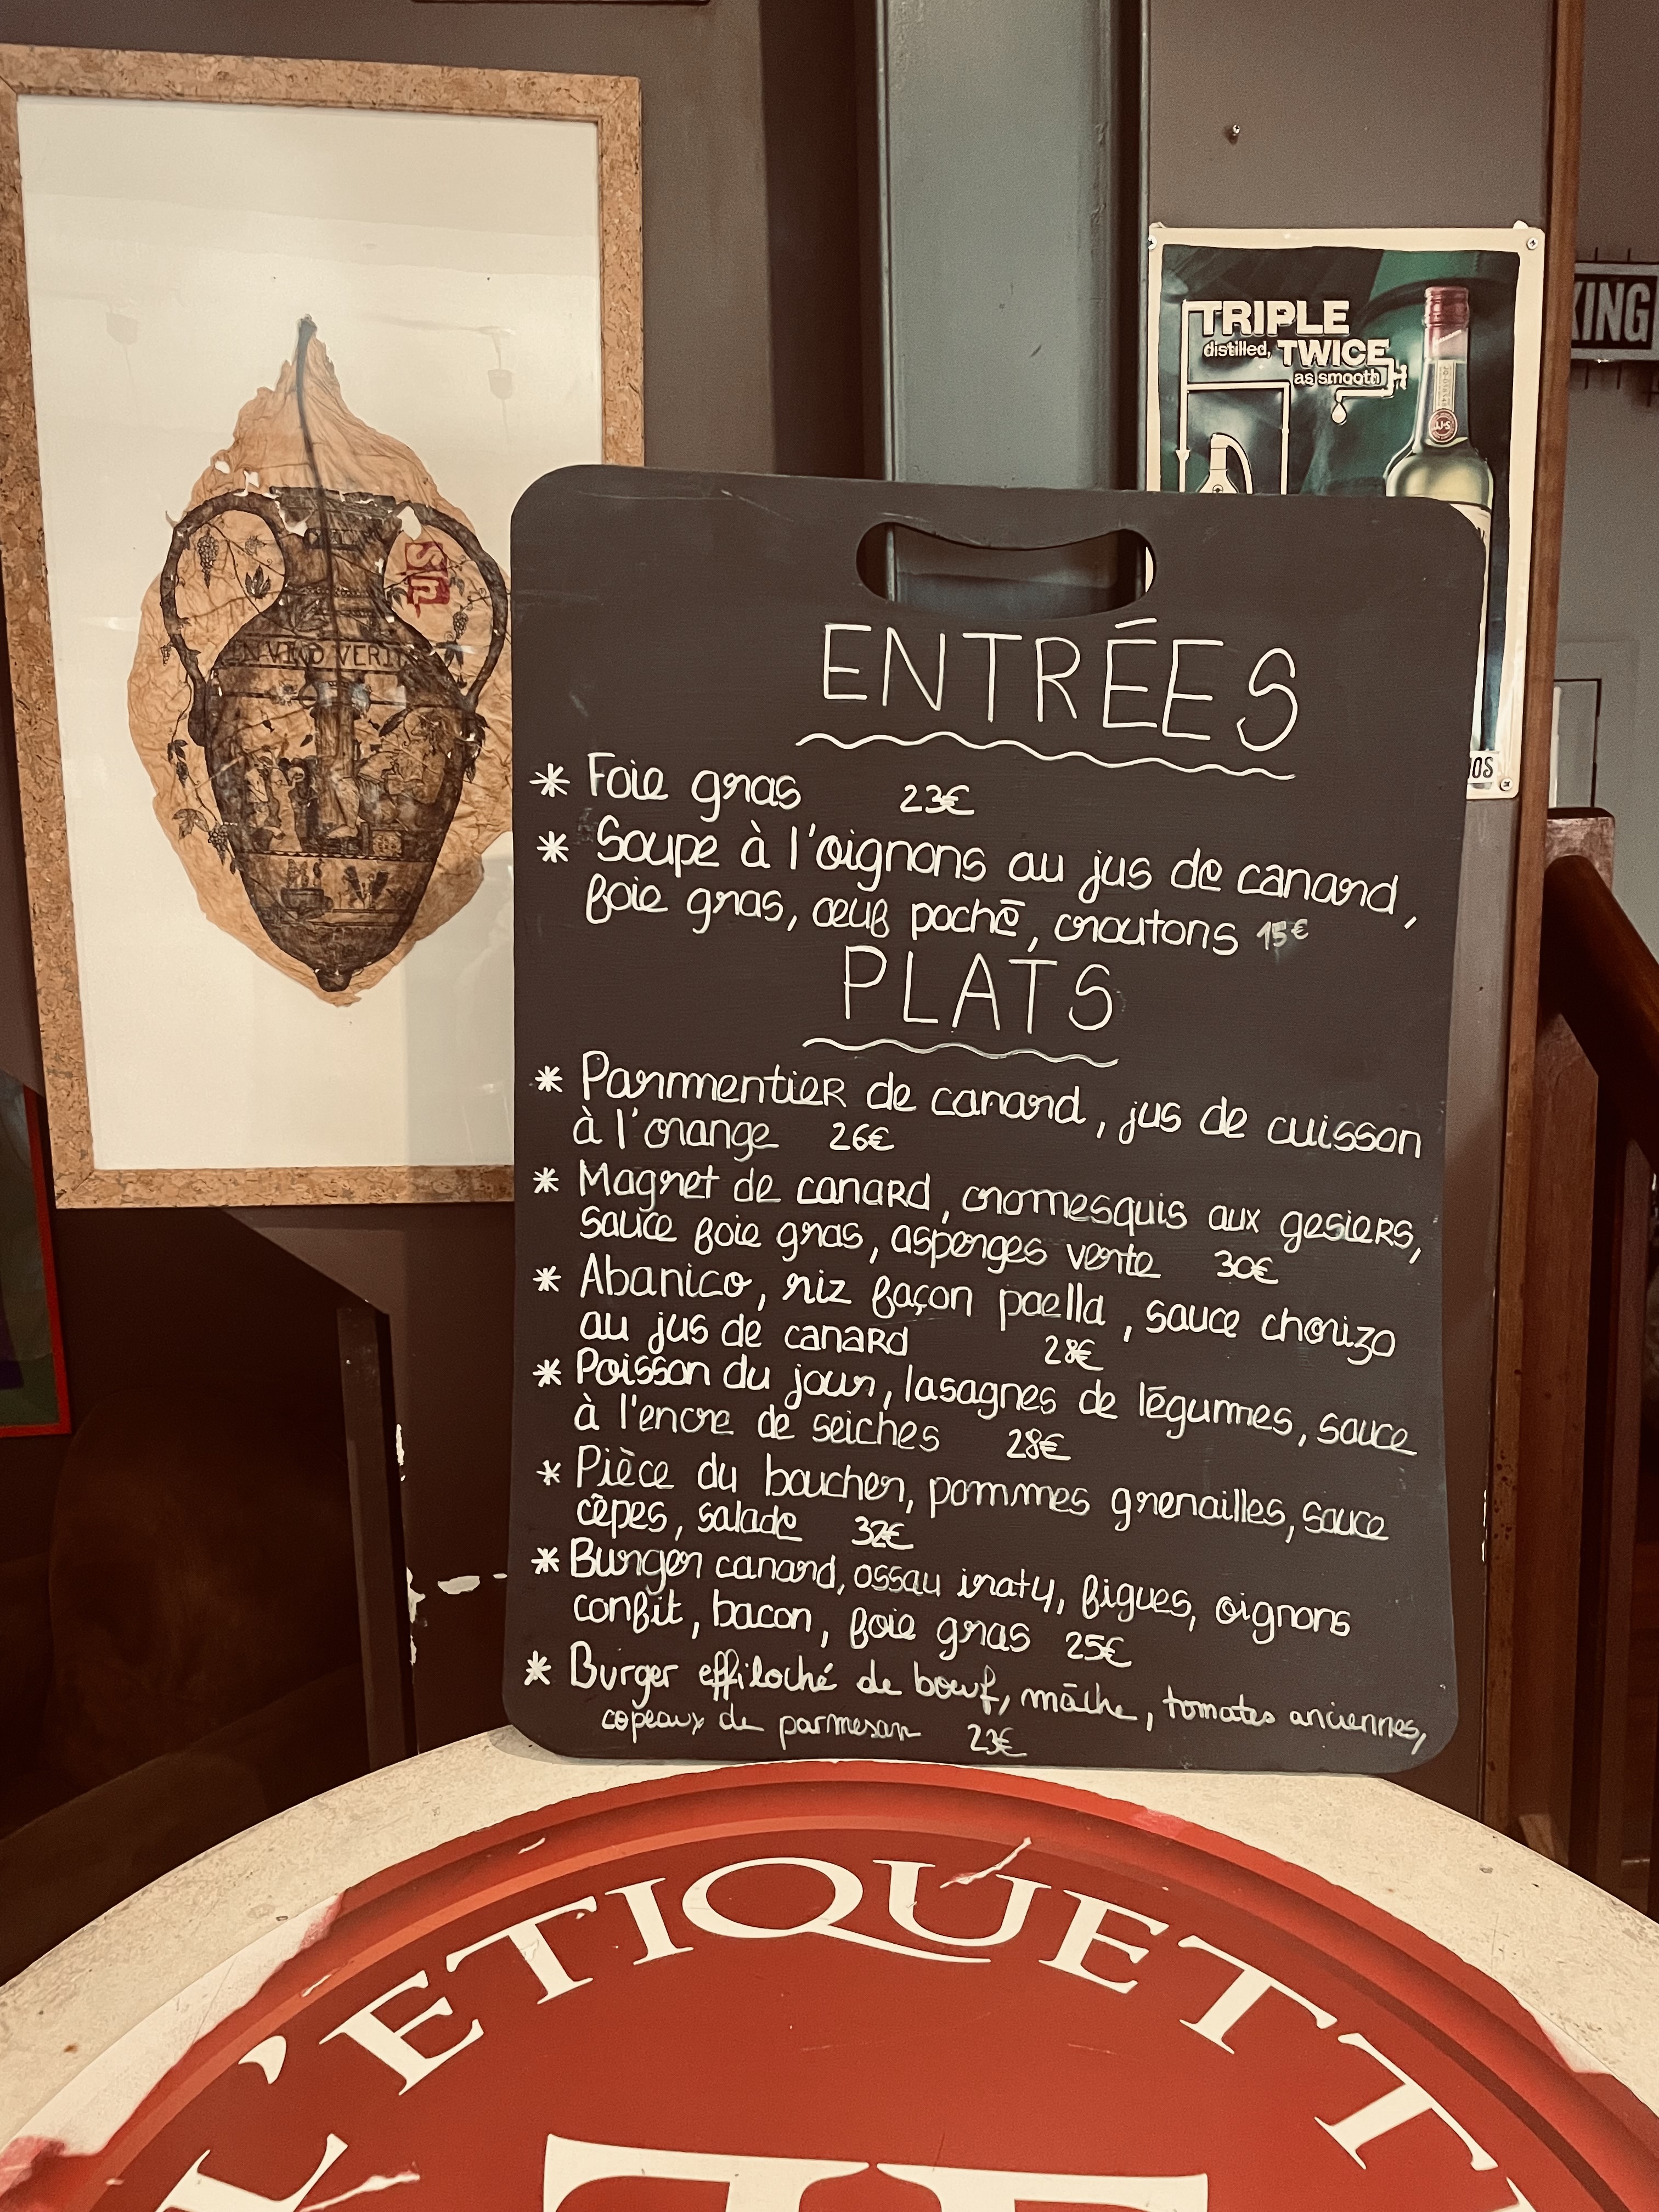 TRIPLE
distilled, TWICE
as smooth
JJ&S
KING
IN VINO VERIT
ENTRÉES
* Foie gras 23€
* Soupe à l'oignons au jus de canard,
foie gras, œuf poché, croutons 15€
PLATS
* Parmentier de canard, jus de cuisson
à l'orange 26€
* Magret de canard, cromesquis aux gesiers,
sauce foie gras, asperges verte 30€
* Abanico, riz façon paella, sauce chorizo
au jus de canard 28€
* Poisson du jour, lasagnes de légumes, sauce
à l'encre de seiches 28€
* Pièce du boucher, pommes grenailles, sauce
cêpes, salade 32€
* Burger canard, ossau iraty, figues, oignons
confit, bacon, foie gras 25€
* Burger effiloché de bœuf, mâche, tomates anciennes,
copeaux de parmesan 23€
L'ETIQUETT